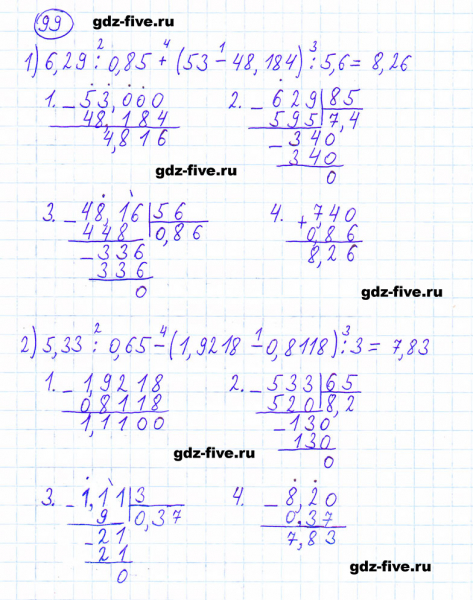 99 gdz-five.ru
1) 6,29 : 0,85 + (53 - 48,184) : 5,6 = 8,26
2 4 1 3
1. - 53,000
48,184
4,816
2. - 629 | 85
595 | 7,4
- 340
340
0
gdz-five.ru
3. - 48,16 | 56
448 | 0,86
- 336
336
0
4. + 7,40
0,86
8,26
gdz-five.ru
2) 5,33 : 0,65 - (1,9218 - 0,8118) : 3 = 7,83
2 4 1 3
1. - 1,9218
0,8118
1,1100
2. - 533 | 65
520 | 8,2
- 130
130
0
gdz-five.ru
3. - 1,11 | 3
9 | 0,37
- 21
21
0
4. - 8,20
0.37
7,83
gdz-five.ru